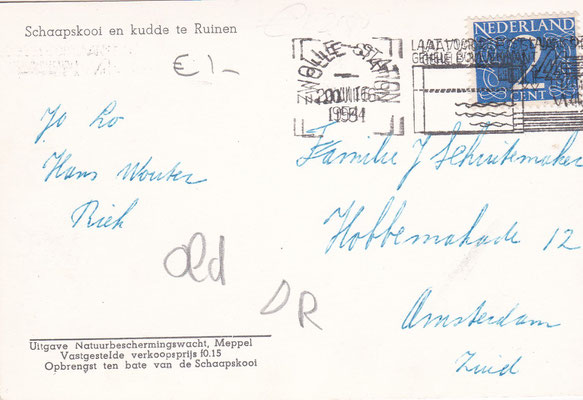 Schaapskooi en kudde te Ruinen
€ 1,-
NEDERLAND
2
CENT
ZWOLLE STATION
1954
Jo Lo
Hans Wouter
Riek
Familie J Schuitemaker
Hobbemakade 12
Amsterdam
Zuid
old
DR
Uitgave Natuurbeschermingswacht, Meppel
Vastgestelde verkoopsprijs f0.15
Opbrengst ten bate van de Schaapskooi